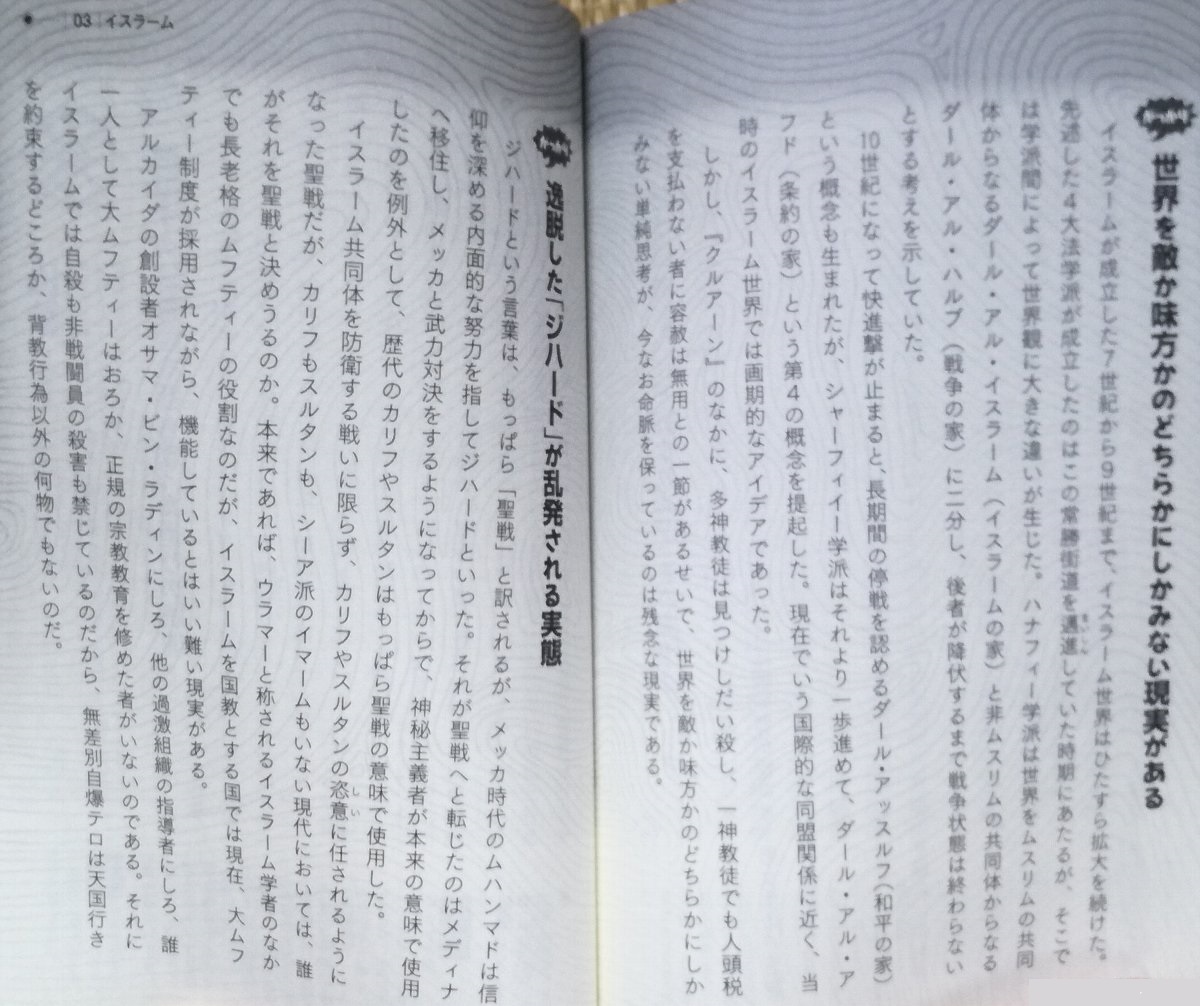 世界を敵か味方かのどちらかにしかみない現実がある
イスラームが成立した7世紀から9世紀まで、イスラーム世界はひたすら拡大を続けた。
先述した4大法学派が成立したのはこの常勝街道を邁進していた時期にあたるが、そこで
は学派間によって世界観に大きな違いが生じた。ハナフィー学派は世界をムスリムの共同
体からなるダール・アル・イスラーム（イスラームの家）と非ムスリムの共同体からなる
ダール・アル・ハルブ（戦争の家）に二分し、後者が降伏するまで戦争状態は終わらない
とする考えを示していた。
10世紀になって快進撃が止まると、長期間の停戦を認めるダール・アッスルフ（和平の家）
という概念も生まれたが、シャーフィイー学派はそれより一歩進めて、ダール・アル・ア
フド（条約の家）という第4の概念を提起した。現在でいう国際的な同盟関係に近く、当
時のイスラーム世界では画期的なアイデアであった。
しかし、『クルアーン』のなかに、多神教徒は見つけしだい殺し、一神教徒でも人頭税
を支払わない者に容赦は無用との一節があるせいで、世界を敵か味方かのどちらかにしか
みない単純思考が、今なお命脈を保っているのは残念な現実である。
03 イスラーム
逸脱した「ジハード」が乱発される実態
ジハードという言葉は、もっぱら「聖戦」と訳されるが、メッカ時代のムハンマドは信
仰を深める内面的な努力を指してジハードといった。それが聖戦へと転じたのはメディナ
へ移住し、メッカと武力対決をするようになってからで、神秘主義者が本来の意味で使用
したのを例外として、歴代のカリフやスルタンはもっぱら聖戦の意味で使用した。
イスラーム共同体を防衛する戦いに限らず、カリフやスルタンの恣意に任されるように
なった聖戦だが、カリフもスルタンも、シーア派のイマームもいない現代においては、誰
がそれを聖戦と決めうるのか。本来であれば、ウラマーと称されるイスラーム学者のなか
でも長老格のムフティーの役割なのだが、イスラームを国教とする国では現在、大ムフ
ティー制度が採用されながら、機能しているとはいい難い現実がある。
アルカイダの創設者オサマ・ビン・ラディンにしろ、他の過激組織の指導者にしろ、誰
一人として大ムフティーはおろか、正規の宗教教育を修めた者がいないのである。それに
イスラームでは自殺も非戦闘員の殺害も禁じているのだから、無差別自爆テロは天国行き
を約束するどころか、背教行為以外の何物でもないのだ。